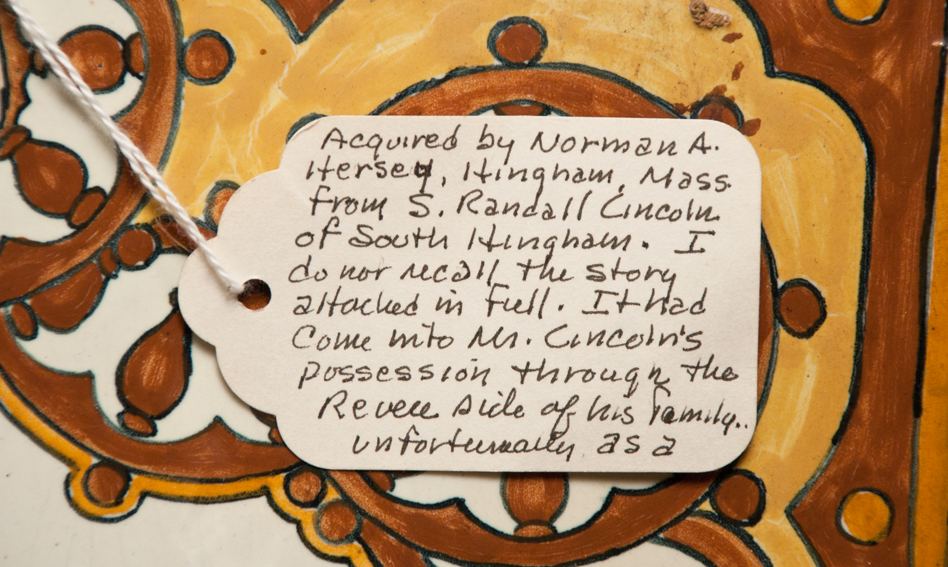 Acquired by Norman A.
Hersey, Hingham, Mass.
from S. Randall Lincoln
of South Hingham. I
do not recall the story
attached in full. It had
come into Mr. Lincoln's
possession through the
Revere side of his family..
unfortunately as a